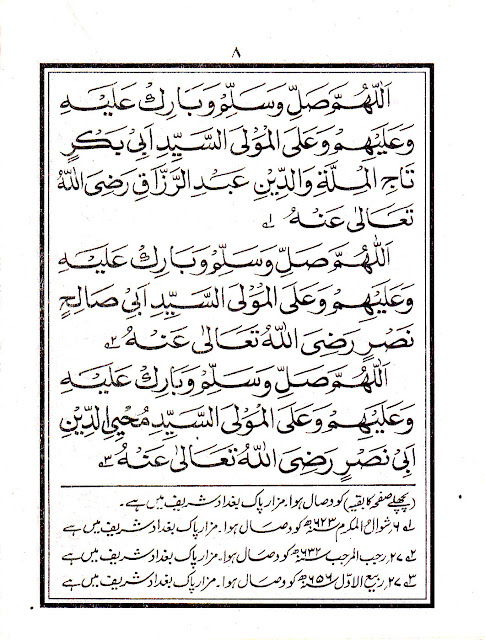 ۸
اَللّٰهُمَّ صَلِّ وَسَلِّمْ وَبَارِكْ عَلَيْهِ
وَعَلَيْهِمْ وَعَلَى الْمَوْلَى السَّيِّدِ اَبِيْ بَكْرٍ
تَاجِ الْمِلَّةِ وَالدِّيْنِ عَبْدِ الرَّزَّاقِ رَضِيَ اللّٰهُ
تَعَالٰى عَنْهُ ؎۱
اَللّٰهُمَّ صَلِّ وَسَلِّمْ وَبَارِكْ عَلَيْهِ
وَعَلَيْهِمْ وَعَلَى الْمَوْلَى السَّيِّدِ اَبِيْ صَالِحٍ
نَصْرٍ رَضِيَ اللّٰهُ تَعَالٰى عَنْهُ ؎۲
اَللّٰهُمَّ صَلِّ وَسَلِّمْ وَبَارِكْ عَلَيْهِ
وَعَلَيْهِمْ وَعَلَى الْمَوْلَى السَّيِّدِ مُحْيِي الدِّيْنِ
اَبِيْ نَصْرٍ رَضِيَ اللّٰهُ تَعَالٰى عَنْهُ ؎۳
(پچھلے صفحہ کا بقیہ) کو وصال ہوا۔ مزار پاک بغداد شریف میں ہے۔
؎۱ ۶؍ شوال المکرم ۶۲۳ھ کو وصال ہوا۔ مزار پاک بغداد شریف میں ہے
؎۲ ۲۷؍ رجب المرجب ۶۳۲ھ کو وصال ہوا۔ مزار پاک بغداد شریف میں ہے
؎۳ ۲۷؍ ربیع الاول ۶۵۶ھ کو وصال ہوا۔ مزار پاک بغداد شریف میں ہے